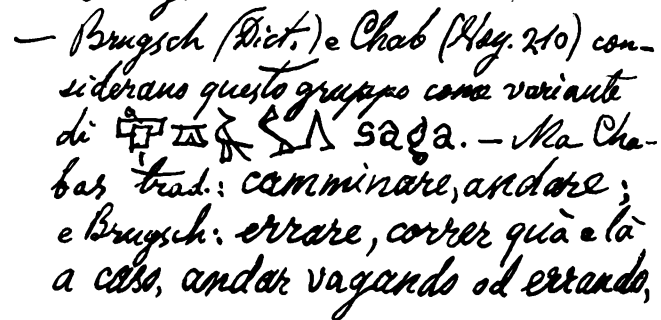 — Brugsch (Dict.) e Chab (Voy. 210) con-
siderano questo gruppo come variante
di saga. — Ma Cha-
bas trad.: camminare, andare;
e Brugsch: errare, correr quà e là
a caso, andar vagando od errando,